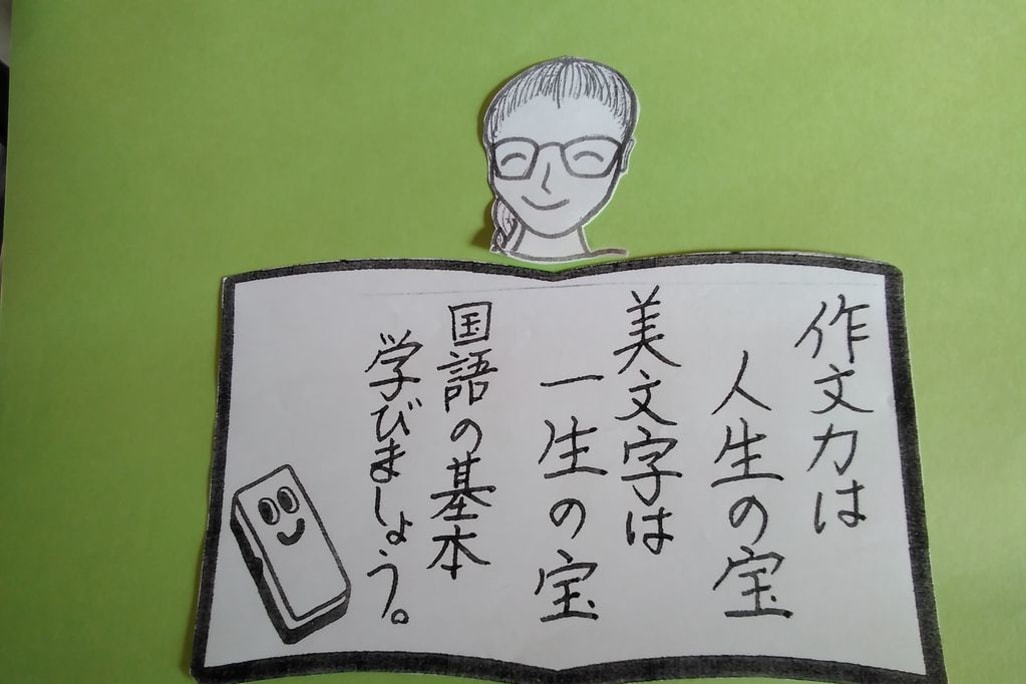 作文力は
人生の宝
美文字は
一生の宝
国語の基本
学びましょう。